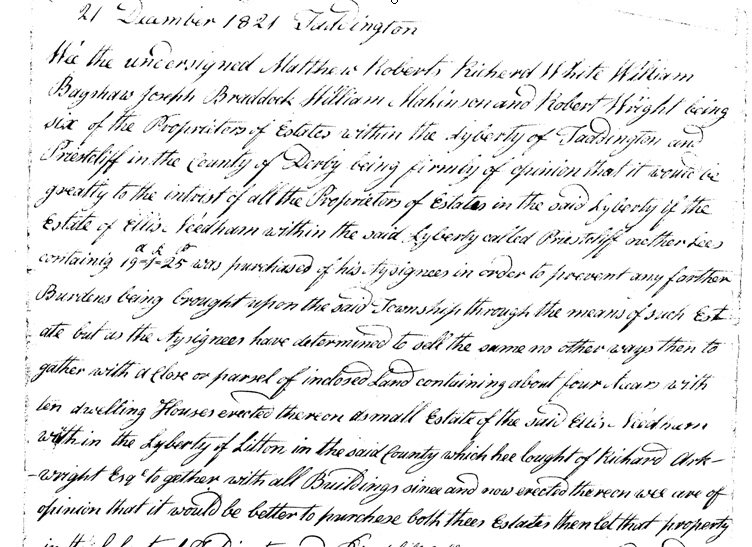 21 December 1821 Taddington
We the undersigned Matthew Roberts Richerd White William
Bagshaw Joseph Braddock William Makinson and Robert Wright being
six of the Proprietors of Estates within the Lyberty of Taddington and
Priestcliff in the County of Derby being firmly of opinion that it would be
greatly to the intrist of all the Proprietors of Estates in the said Lyberty if the
Estate of Ellis Needham within the said Lyberty called Priestcliff nether Lees
containig 19a=1R=25P was purchased of his Assignees in order to prevent any farther
Burdens being brought upon the said Township through the means of such Est
ate but as the Assignees have determined to sell the same no other ways then to
gather with a Close or parsel of inclosed Land containing about four Acars with
ten dwelling Houses erected thereon a small Estate of the said Ellis Needham
within the Lyberty of Litton in the said County which hee bought of Richard Ark-
-wright Esqr to gether with all Buildings sinee and now erected thereon wee are of
opinion that it would be better to purchese both thees Estates then let that property